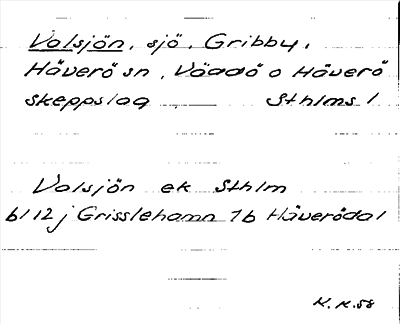 Valsjön, sjö, Gribby,
Häverö sn, Väddö o Häverö
skeppslag Sthlms l
Valsjön ek Sthlm
bl 12 j Grisslehamn 1b Häverödal
K.K.58